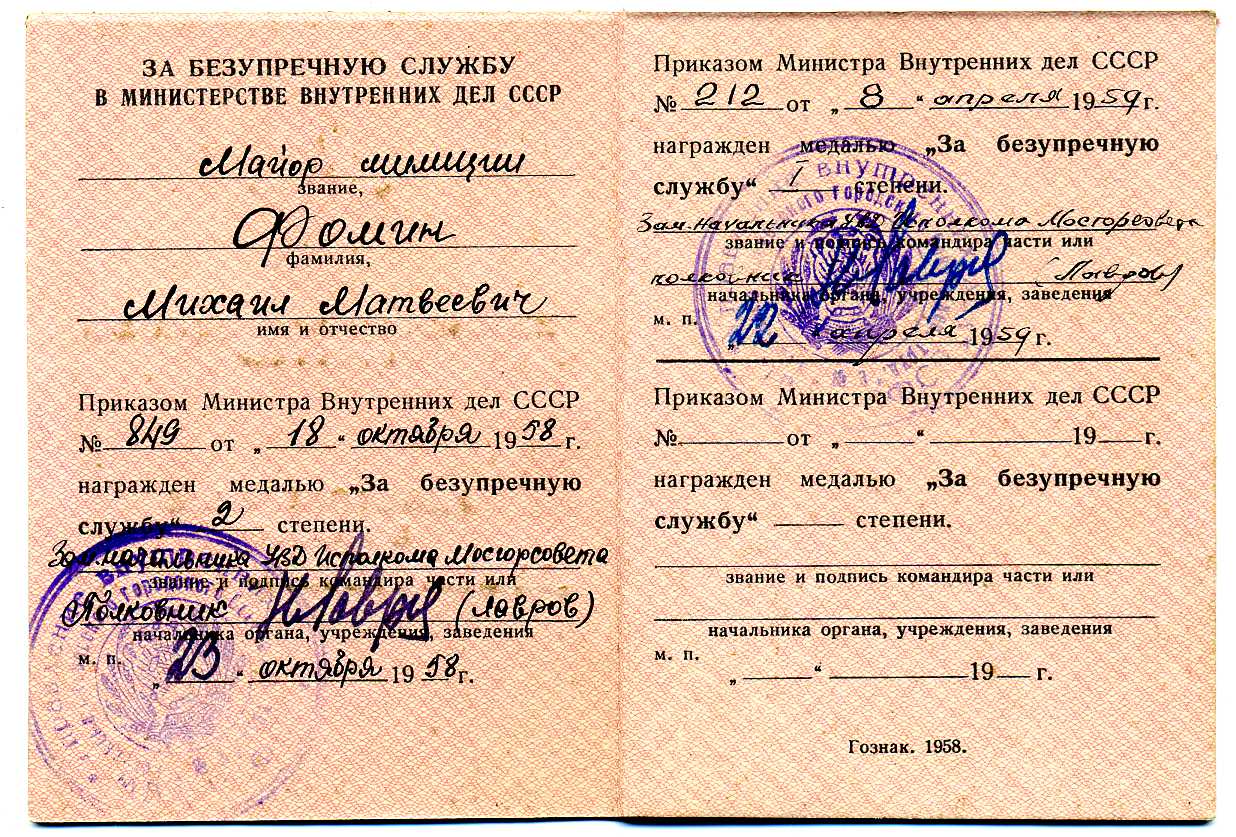 ЗА БЕЗУПРЕЧНУЮ СЛУЖБУ
В МИНИСТЕРСТВЕ ВНУТРЕННИХ ДЕЛ СССР
Майор милиции
звание,
Фомин
фамилия,
Михаил Матвеевич
имя и отчество
Приказом Министра Внутренних дел СССР
№ 849 от „ 18 “ октября 1958 г.
награжден медалью „За безупречную
службу“ 2 степени.
Зам. начальника УВД Исполкома Мосгорсовета
звание и подпись командира части или
Полковник (Лавров)
начальника органа, учреждения, заведения
м. п.
„ 23 “ октября 1958 г.
Приказом Министра Внутренних дел СССР
№ 212 от „ 8 “ апреля 1959 г.
награжден медалью „За безупречную
службу“ I степени.
Зам. начальника УВД Исполкома Мосгорсовета
звание и подпись командира части или
полковник (Лавров)
начальника органа, учреждения, заведения
м. п.
„ 22 “ апреля 1959 г.
Приказом Министра Внутренних дел СССР
№ от „ “ 19 г.
награжден медалью „За безупречную
службу“ степени.
звание и подпись командира части или
начальника органа, учреждения, заведения
м. п.
„ “ 19 г.
Гознак. 1958.